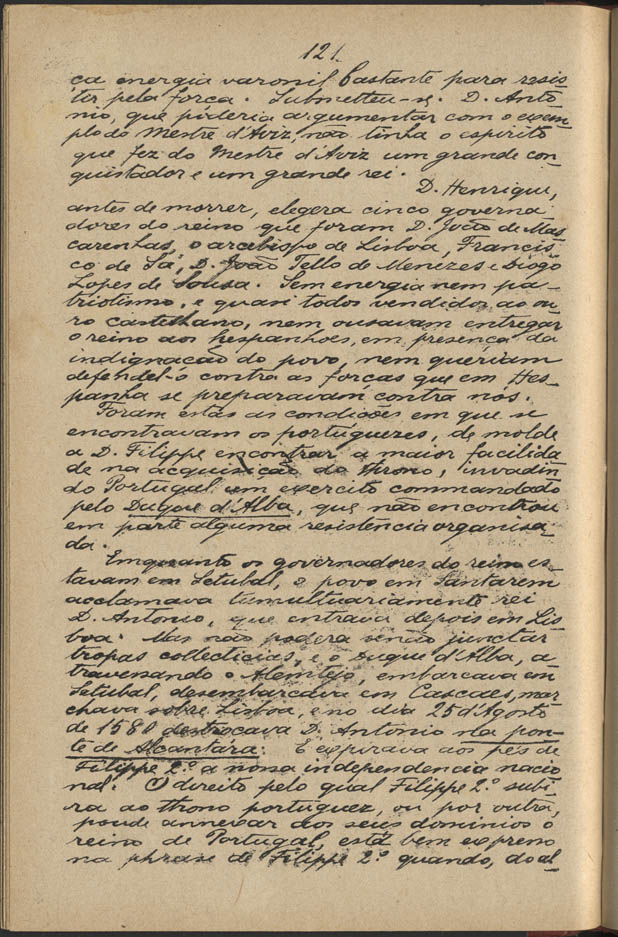 121.
ca energia varonil bastante para resis-
tir pela força. Submetteu-se. D. Anto-
nio, que poderia argumentar com o exem-
plo do Mestre d'Aviz, não tinha o espirito
que fez do Mestre d'Aviz um grande con-
quistador e um grande rei.
D. Henrique,
antes de morrer, elegera cinco governa-
dores do reino que foram D. João de Mas-
carenhas, o arcebispo de Lisboa, Francis-
co de Sá, D. João Tello de Menezes e Diogo
Lopes de Sousa. Sem energia nem pa-
triotismo, e quasi todos vendidos ao ou-
ro castelhano, nem ousavam entregar
o reino aos hespanhoes, em presença da
indignação do povo, nem queriam
defendel-o contra as forças que em Hes-
panha se preparavam contra nós.
Foram estas as condições em que se
encontravam os portuguezes, de molde
a D. Filippe encontrar a maior facilida-
de na acquisição do throno, invadin-
do Portugal um exercito commandado
pelo Duque d'Alba, que não encontrou
em parte alguma resistência organisa-
da.
Emquanto os governadores do reino es-
tavam em Setubal, o povo em Santarem
acclamava tumultuariamente rei
D. Antonio, que entrava depois em Lis-
boa. Mas não podera senão junctar
tropas collecticias, e o Duque d'Alba, a-
travessando o Alemtejo, embarcava em
Setubal, desembarcava em Cascaes, mar-
chava sobre Lisboa, e no dia 25 d'Agosto
de 1580 destroçava D. Antonio na pon-
te de Alcantara. E expirava aos pés de
Filippe 2.º a nossa independencia nacio-
nal. O direito pelo qual Filippe 2.º subi-
ra ao throno portuguez, ou por outra,
poude annexar aos seus dominios o
reino de Portugal, está bem expresso
na phrase de Filippe 2.º quando, do al-